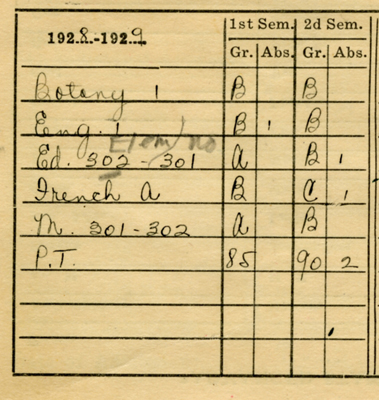 1928-1929 1st Sem. 2d Sem.
Gr. Abs. Gr. Abs.
Botany 1 B B
Eng. 1 B 1 B
Elem/no
Ed. 302-301 A B 1
French A B C 1
M. 301-302 A B
P.T. 85 90 2